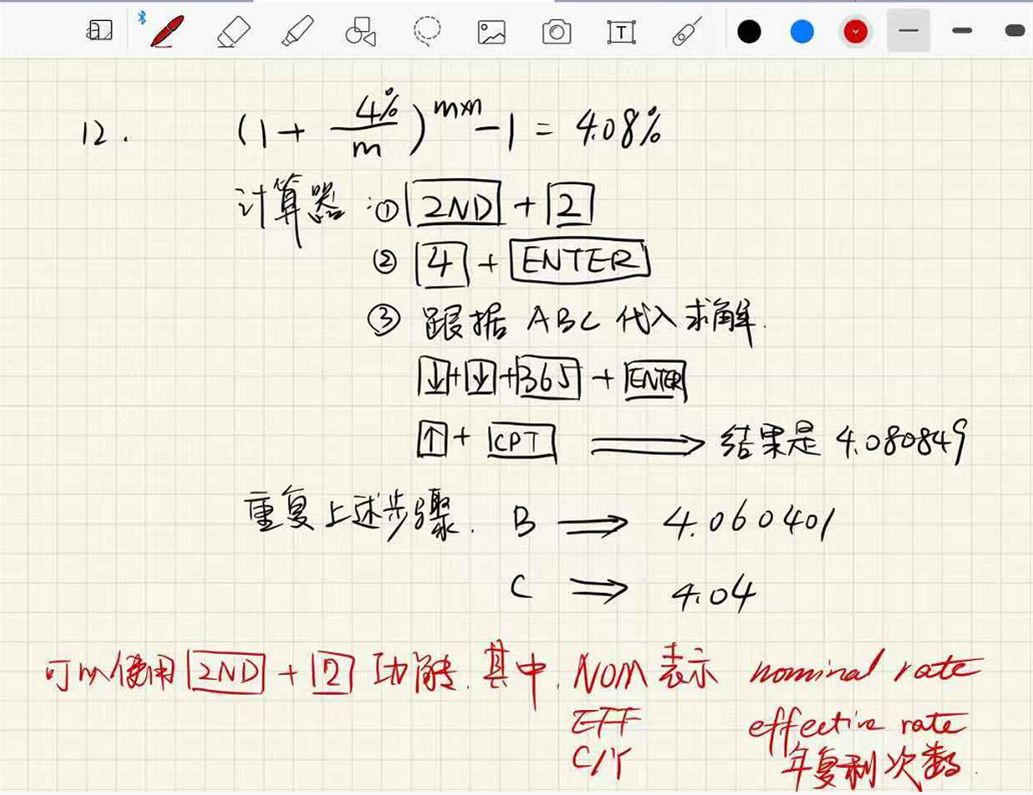 12. (1 + 4%/m)^m×n - 1 = 4.08%
计算器: ① 2ND + 2
② 4 + ENTER
③ 跟据 ABC 代入求解.
↓+↓+365 + ENTER
↑ + CPT ⟹ 结果是 4.080849
重复上述步骤. B ⟹ 4.060401
C ⟹ 4.04
可以使用 2ND + 2 功能. 其中. NOM 表示 nominal rate
EFF effective rate
C/Y 年复利次数.